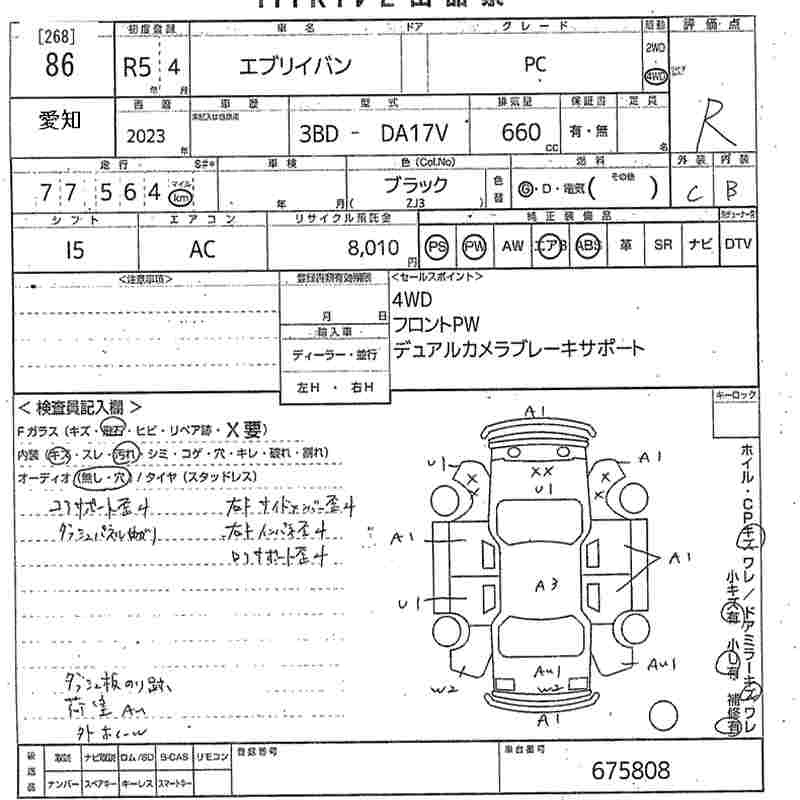 [268]
86
初度登録
R5 4
年 月
車名
エブリイバン
ドア
グレード
PC
駆動
2WD
4WD
評価点
R
愛知
2023
年
車歴
型式
3BD - DA17V
排気量
660
CC
保証書
有・無
定員
名
外装 内装
C B
走行
77,564
マイル
km
車検
年 月
色 (Col.No)
ブラック
( ZJ3 )
色替
燃料
G・D・電気( その他 )
シフト
I5
エアコン
AC
リサイクル預託金
8,010
円
純正装備品
PS PW AW エアB ABS 革 SR ナビ DTV
<注意事項>
登録書類有効期限
月 日
輸入車
ディーラー・並行
左H ・ 右H
<セールスポイント>
4WD
フロントPW
デュアルカメラブレーキサポート
キーロック
<検査員記入欄>
Fガラス (キズ・飛石・ヒビ・リペア跡・X要)
内装 (キズ・スレ・汚れ・シミ・コゲ・穴・キレ・破れ・割れ)
オーディオ (無し・穴) / タイヤ (スタッドレス)
コアサポート歪み
右F サイドメンバー歪み
ダッシュパネル曲がり
右F インパネ歪み
ロアサポート歪み
ダッシュ板のり跡
荷室 Au
A1
U1
XX
U1
A1
X
X
X
X
A1
A1
U1
A3
Au1
Au1
W2
W2
A1
ホイル・CPキズ ワレ / ドアミラーキズ ワレ
小キズ有 小U有 補修有
後送品
取説 ナビ取説 ロム/SD B-CAS リモコン
ナンバー スペアキー キーレス スマートキー
登録番号
車台番号
675808